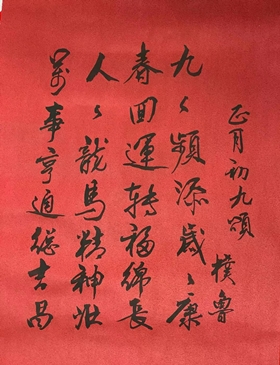 正月初九頌
樸魯
九々頻添歲々康
春回運轉福綿長
人々龍馬精神壯
萬事亨通總吉昌